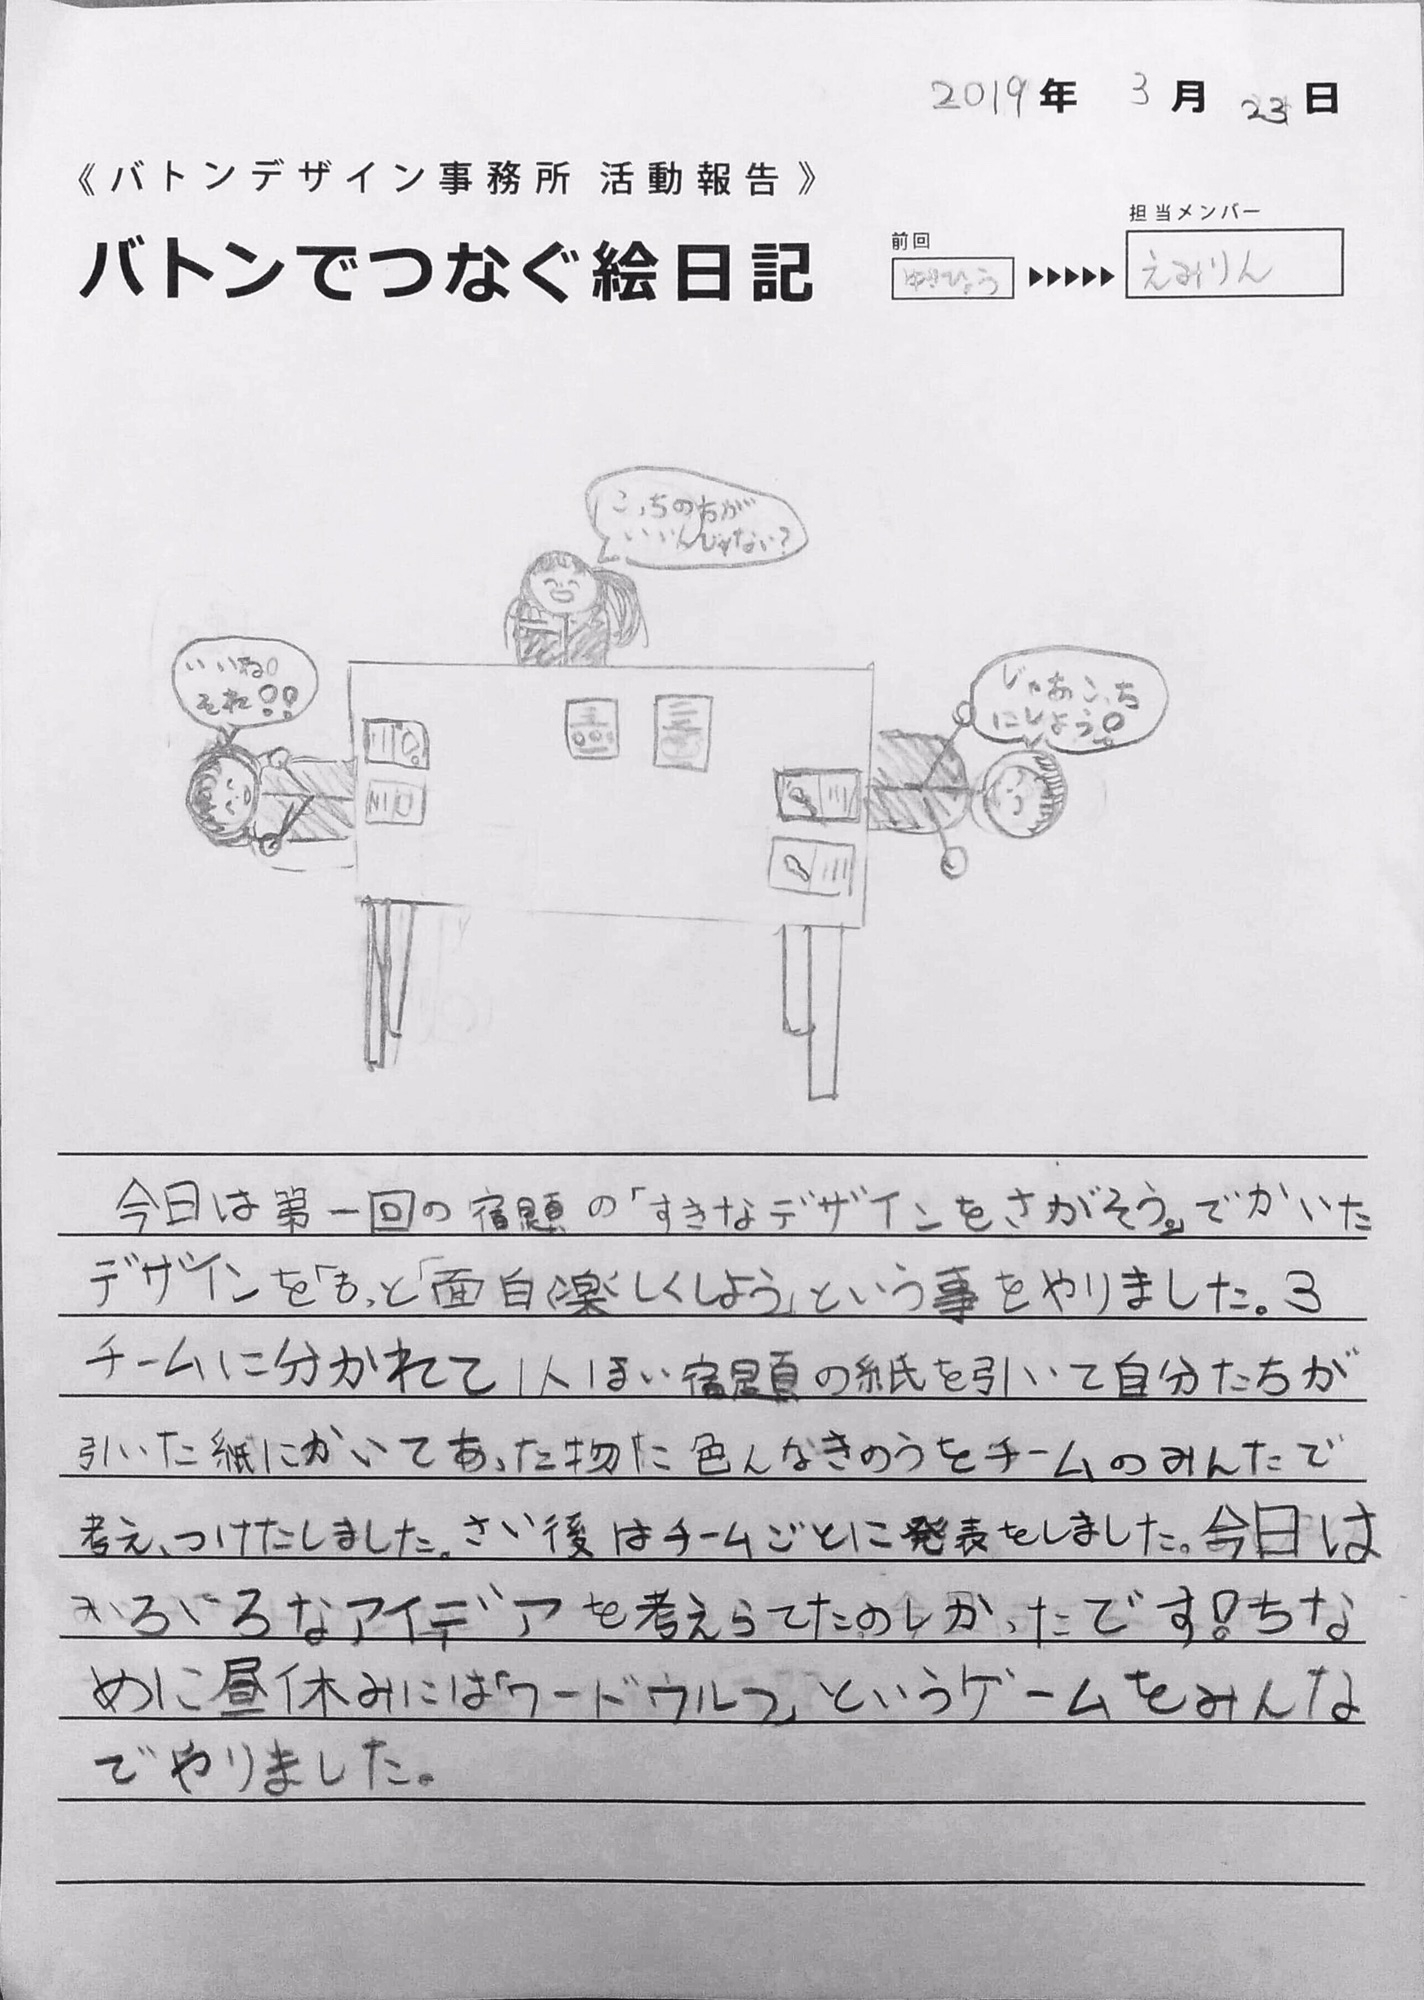 2019年 3月 23日
《バトンデザイン事務所 活動報告》
バトンでつなぐ絵日記
前回
ゆきひょう
▶▶▶▶▶
担当メンバー
えみりん
こっちの方が
いいんじゃない?
いいね!
それ!!
じゃあこっち
にしよう!
今日は第一回の宿題の「すきなデザインをさがそう。」でかいた
デザインを「もっと「面白楽しくしよう」という事をやりました。3
チームに分かれて1人ほい宿題の紙を引いて自分たちが
引いた紙にかいてあった物に色んなきのうをチームのみんなで
考え、つけたしました。さい後はチームごとに発表をしました。今日は
いろいろなアイデアを考えらてたのしかったです!ちな
めに昼休みには「ワードウルフ」というゲームをみんな
でやりました。